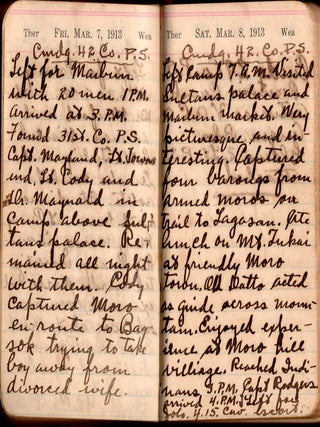 Ther FRI. MAR. 7, 1913 Wea
Cmdg. 42. Co. P.S.
Left for Maibun
with 20 men 1 P.M.
Arrived at 3 P.M.
Found 31st. Co. P.S.
Capt. Mayland, Lt.
Lt. Cody and
Dr. Maynard in
camp above Sul-
tans palace. Re-
mained all night
with them. Cody
captured Moro
en route to
trying to take
boy away from
divorced wife.
Ther SAT. MAR. 8, 1913 Wea
Cmdg. 42. Co. P.S.
Left Camp 7 A.M. Visited
Sultans palace and
Maibun market. Very
picturesque and in-
teresting. Captured
four barongs from
armed moros on
trail to Lagasan. Ate
lunch on Mt. Tukai
at friendly Moro
town. Old Datto acted
as guide across moun-
tain. Enjoyed exper-
ience at Moro hill
villiage. Reached Indi-
nans 3 P.M. Capt Rodgers
arrived 4 P.M. Left for
Jolo. 4.15. Cav. escort.